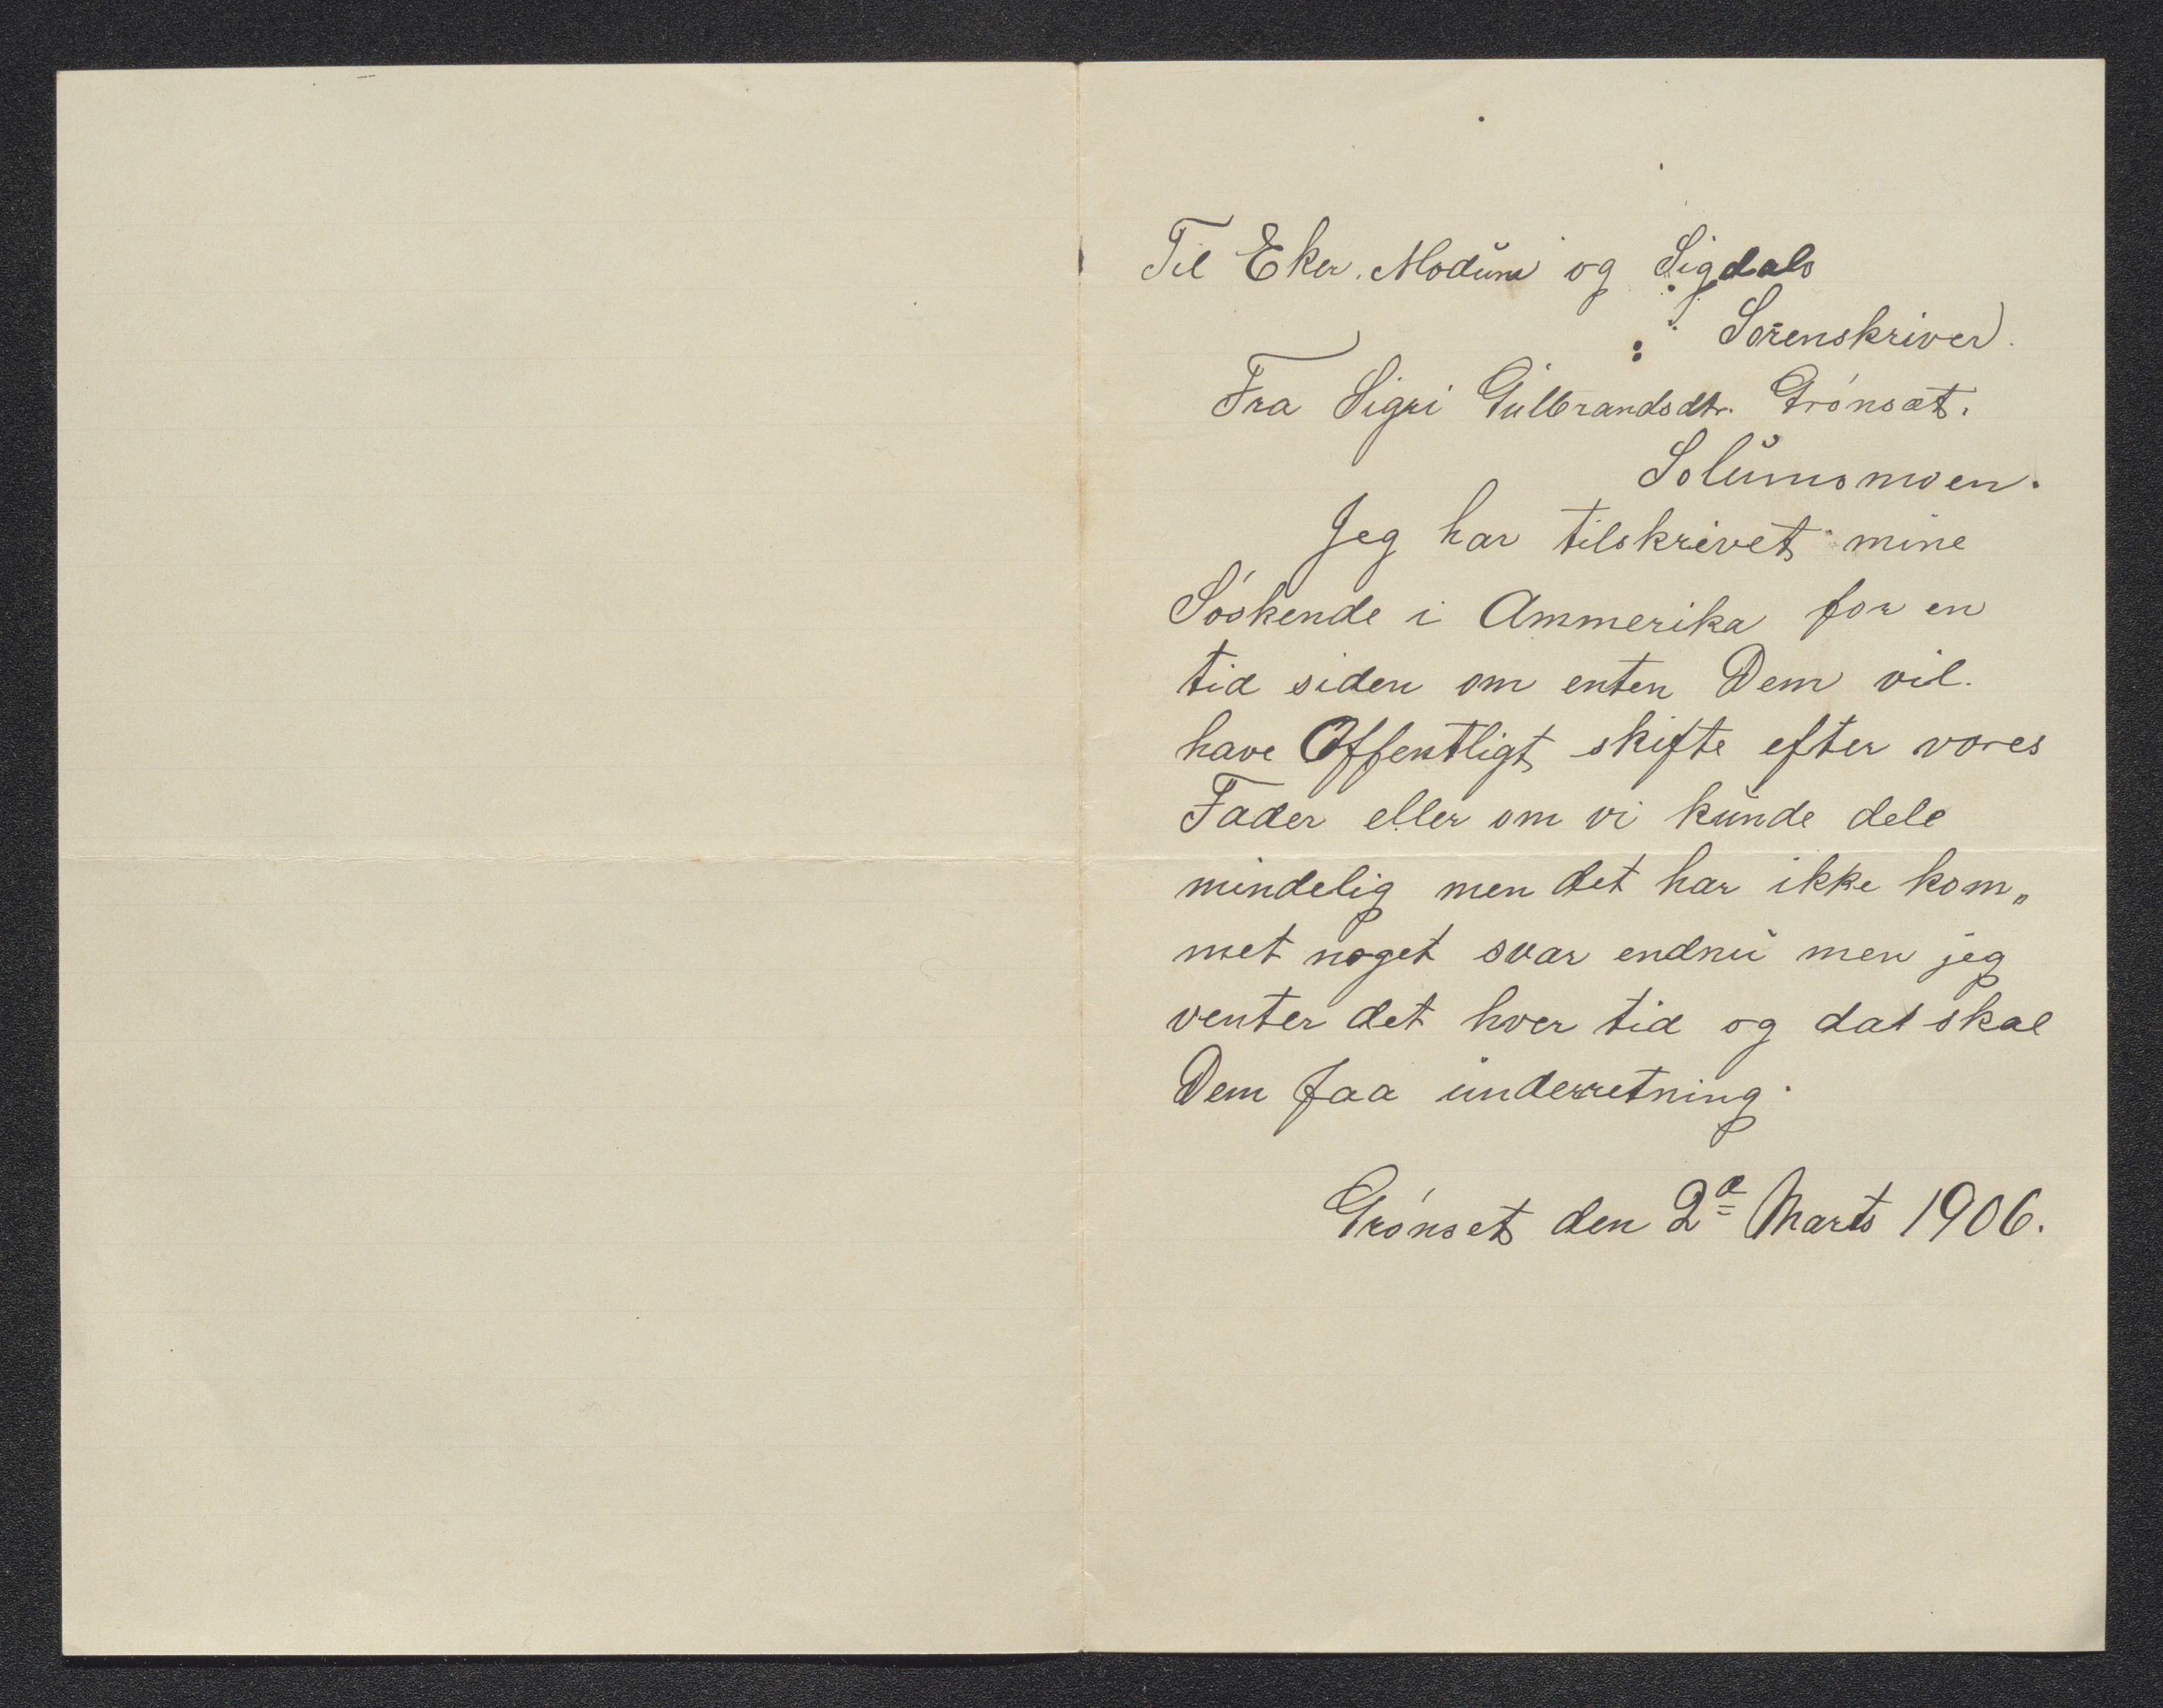 Til Eker. Modum og Sigdals
Sorenskriver.
Fra Sigri Gulbrandsdtr. Grónsæt.
Solumsmoen.
Jeg har tilskrivet mine
Sóskende i Ammerika for en
tid siden om enten Dem vil.
have Offentligt skifte efter vores
Fader eller om vi kunde dele
mindelig men det har ikke kom„
met noget svar endnu men jeg
venter det hver tid og dat skal
Dem faa underretning.
Grónset den 2d Marts 1906.